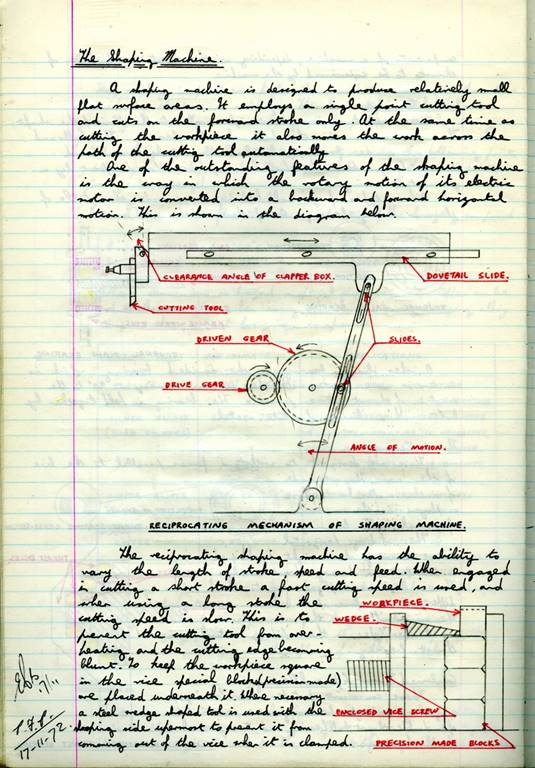 The Shaping Machine.
A shaping machine is designed to produce relatively small
flat surface areas. It employs a single point cutting tool
and cuts on the forward stroke only. At the same time as
cutting the workpiece it also moves the work across the
path of the cutting tool automatically
One of the outstanding features of the shaping machine
is the way in which the rotary motion of its electric
motor is converted into a backward and forward horizontal
motion. This is shown in the diagram below.
CLEARANCE ANGLE OF CLAPPER BOX.
DOVETAIL SLIDE.
CUTTING TOOL
DRIVEN GEAR
SLIDES.
DRIVE GEAR
ANGLE OF MOTION.
RECIPROCATING MECHANISM OF SHAPING MACHINE.
The reciprocating shaping machine has the ability to
vary the length of stroke, speed and feed. When engaged
in cutting a short stroke a fast cutting speed is used, and
when using a long stroke the
cutting speed is slow. This is to
prevent the cutting tool from over-
heating and the cutting edge becoming
blunt. To keep the workpiece square
in the vice special blocks (precision made)
are placed underneath it. When necessary
a steel wedge shaped tool is used with the
sloping side uppermost to prevent it from
comming out of the vice when it is clamped.
WORKPIECE.
WEDGE.
ENCLOSED VICE SCREW
PRECISION MADE BLOCKS
17/11
17-11-72.